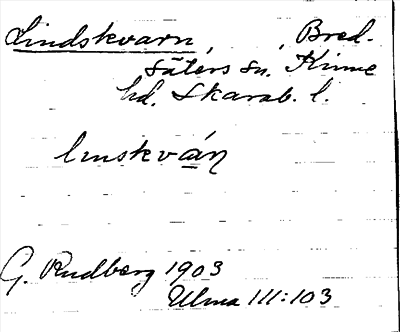 Lindskvarn, , Bred-
säters sn. Kinne
hd. Skarab. l.
linskván
G. Rudberg 1903
Ulma III:103